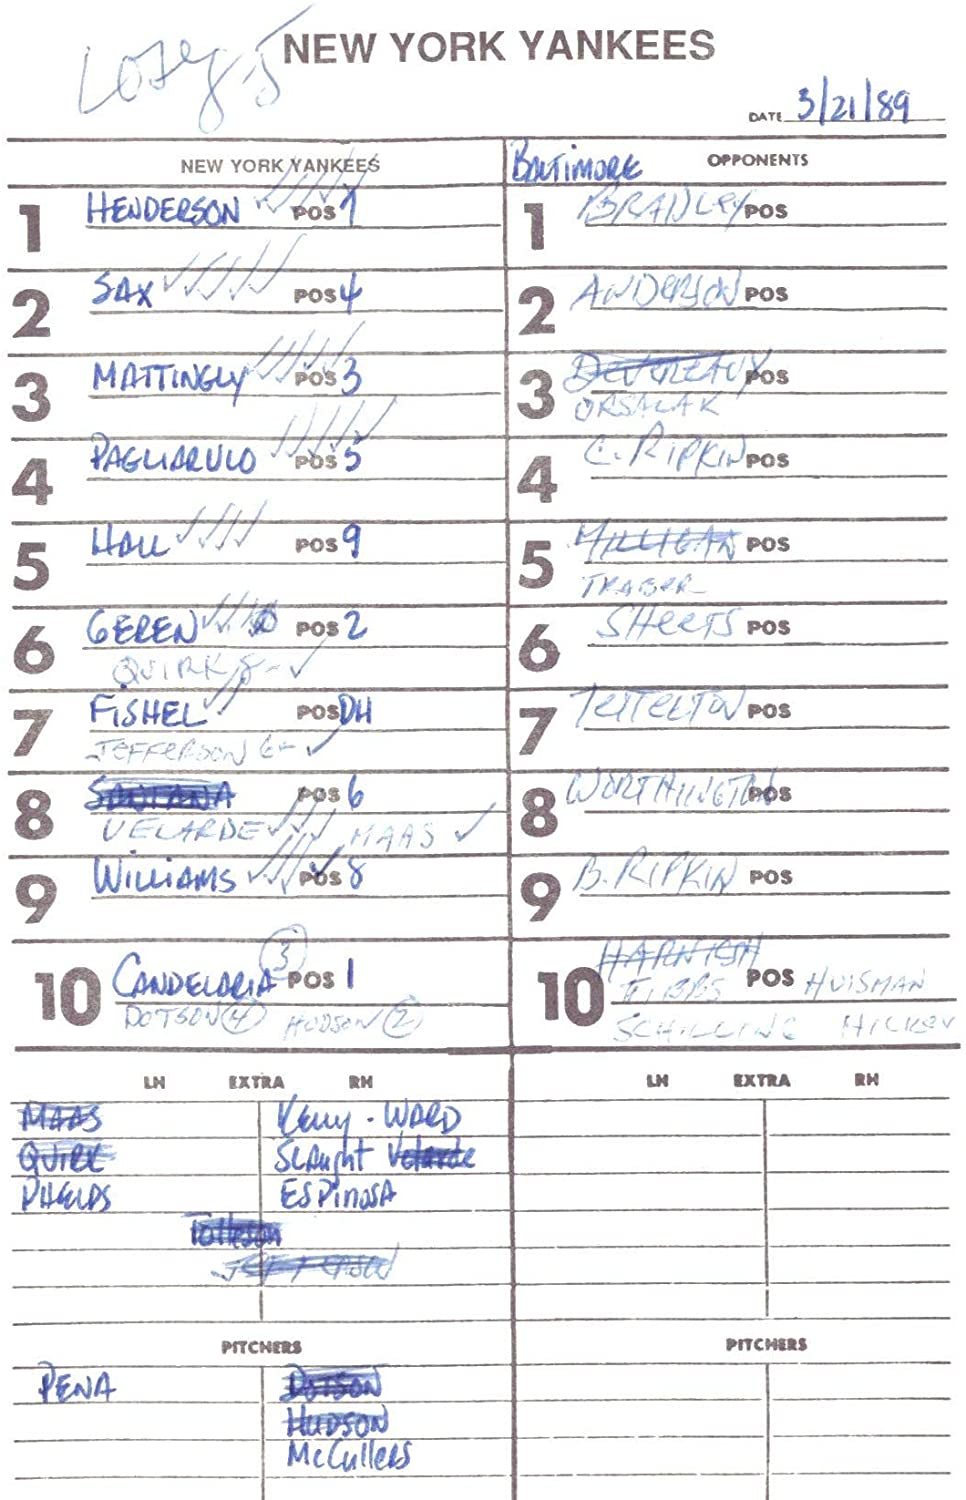 NEW YORK YANKEES
DATE 3/21/89
NEW YORK YANKEES
1 HENDERSON POS 7
2 SAX POS 4
3 MATTINGLY POS 3
4 PAGLIARULO POS 5
5 HALL POS 9
6 GEREN POS 2
QUIRK 8-
7 FISHEL POS DH
JEFFERSON 6-
8 SANTANA POS 6
VELARDE MAAS
9 WILLIAMS POS 8
10 CANDELARIA 3 POS 1
DOTSON 4 HUDSON 2
LH EXTRA RH
MAAS Kelly - WARD
QUIRK Slaught Velarde
PHELPS ESPINOSA
Tolleson
JEFFERSON
PITCHERS
PENA DOTSON
HUDSON
McCullers
BALTIMORE OPPONENTS
1 BRADLEY POS
2 ANDERSON POS
3 DEVEREAUX POS
ORSALAK
4 C. RIPKIN POS
5 MILLIGAN POS
TRABER
6 SHEETS POS
7 TETTELTON POS
8 WORTHINGTON POS
9 B. RIPKIN POS
10 HARNISH POS HUISMAN
TIBBS
SCHILLING HICKEY
LH EXTRA RH
PITCHERS